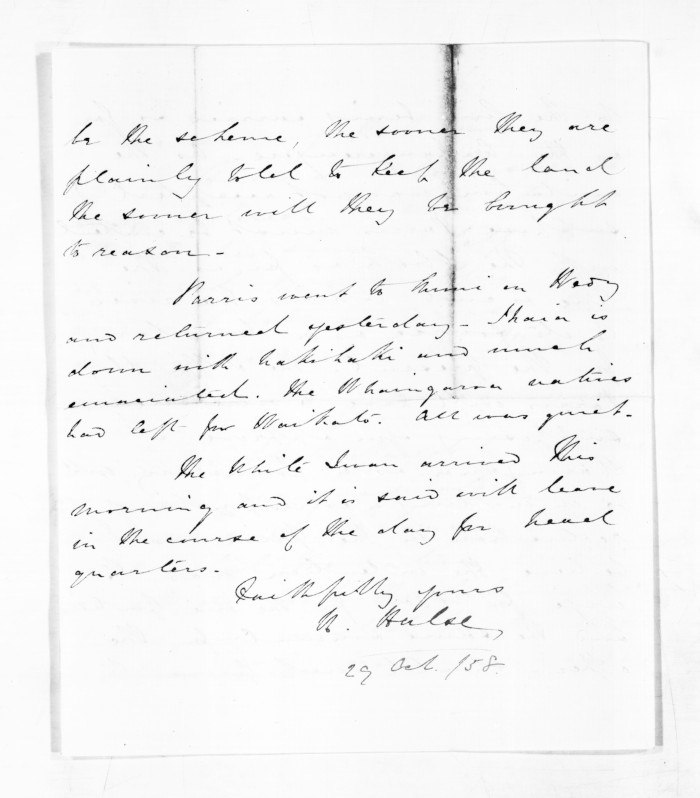 be the scheme, the sooner they are
plainly told to keep the land
the sooner will they be brought
to reason -
Parris went to Mimi on Wedy
and returned yesterday - Ihaia is
down with hakihaki and much
emaciated. The Whaingaroa natives
had left for Waikato. All was quiet -
The White Swan arrived this
morning and it is said will leave
in the course of the day for head
quarters -
Faithfully yours
Halse
29 Oct. /58.